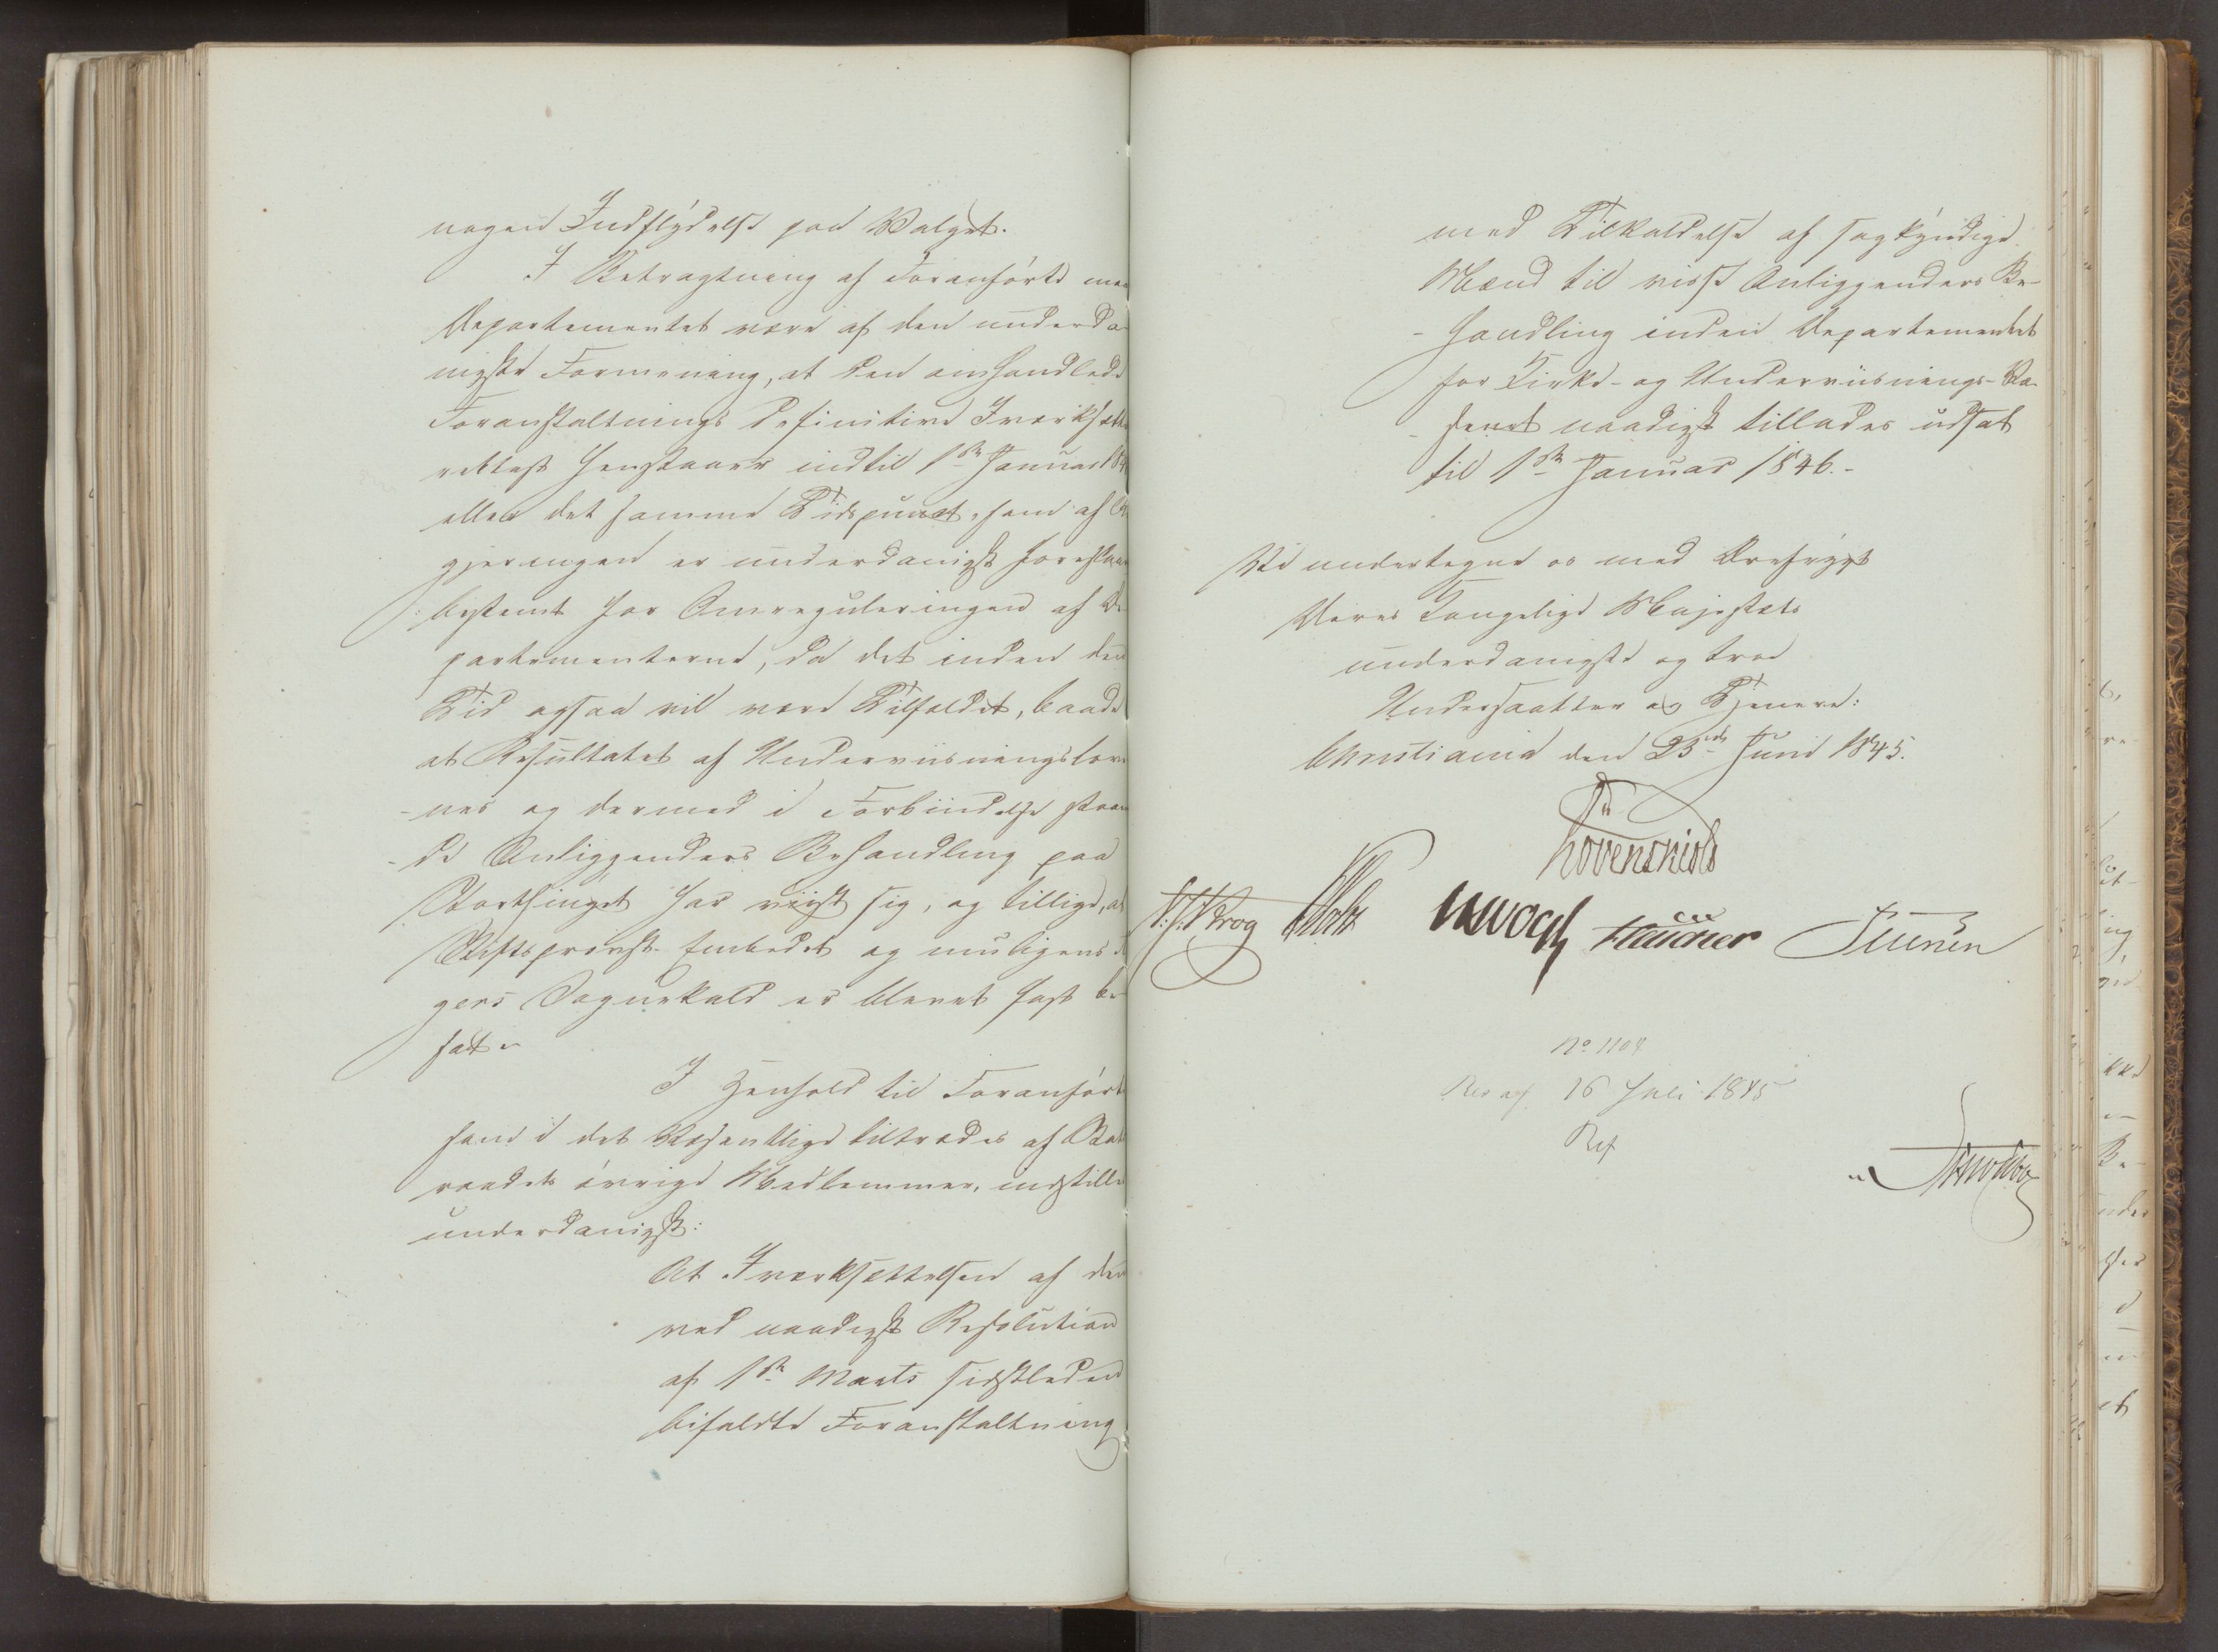 nogen Indflydelse paa Valget.
I Betragtning af Foranførte maa
Departementet være af den underda-
nigste Formening, at den omhandlede
Foranstaltnings definitive Iværksætt
rettest henstaaer indtil 1ste Januar 184
eller det samme Tidspunct, som af
gjeringen er underdanigst foreslaaet
bestemt for Omreguleringen af De
partementerne, da det inden den
Tid ogsaa vil være Tilfældet, baade
at Resultatet af Underviisningslove
-nes og dermed i Forbindelse staaen
-de Anliggenders Behandling paa
Storthinget har viist sig, og tillige, at
Stiftsprovst-Embedet og muligens
gers Sognekald er blevet fast be
sat.
I Henhold til Foranførte
som i det Væsentlige tiltrædes af Stats
raadets øvrige Medlemmer, indstilles
underdanigst:
At Iværksættelsen af den
ved naadigst Resolution
af 1ste Marts sidstleden
bifaldte Foranstaltning
med Tilkaldelse af sagkyndige
Mænd til visse Anliggenders Be-
-handling inden Departementet
for Kirke- og Underviisnings-Væ-
-senet naadigst tillades udsat
til 1ste Januar 1846.-
Vi undertegne os med Ærefrygt
Deres Kongelige Majestæts
underdanigste og troe
Undersaatter og Tjenere:
Christiania den 23de Juni 1845.
Løvenskiold
Krog Holst Vogt
No 1104
Res af 16 Juli 1845
Ref